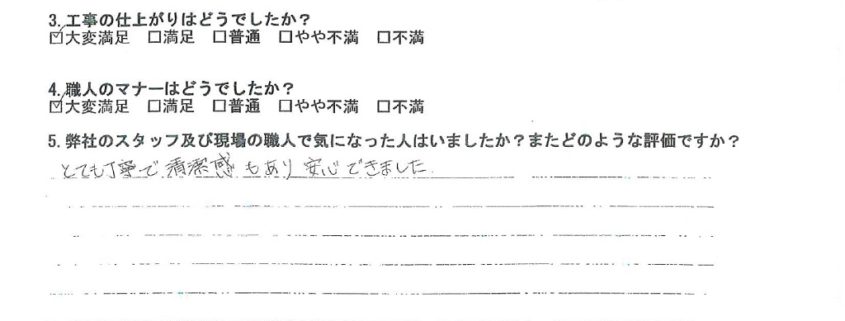 3. 工事の仕上がりはどうでしたか？
☑大変満足 □満足 □普通 □やや不満 □不満
4. 職人のマナーはどうでしたか？
☑大変満足 □満足 □普通 □やや不満 □不満
5. 弊社のスタッフ及び現場の職人で気になった人はいましたか？またどのような評価ですか？
とても丁寧で清潔感もあり安心できました